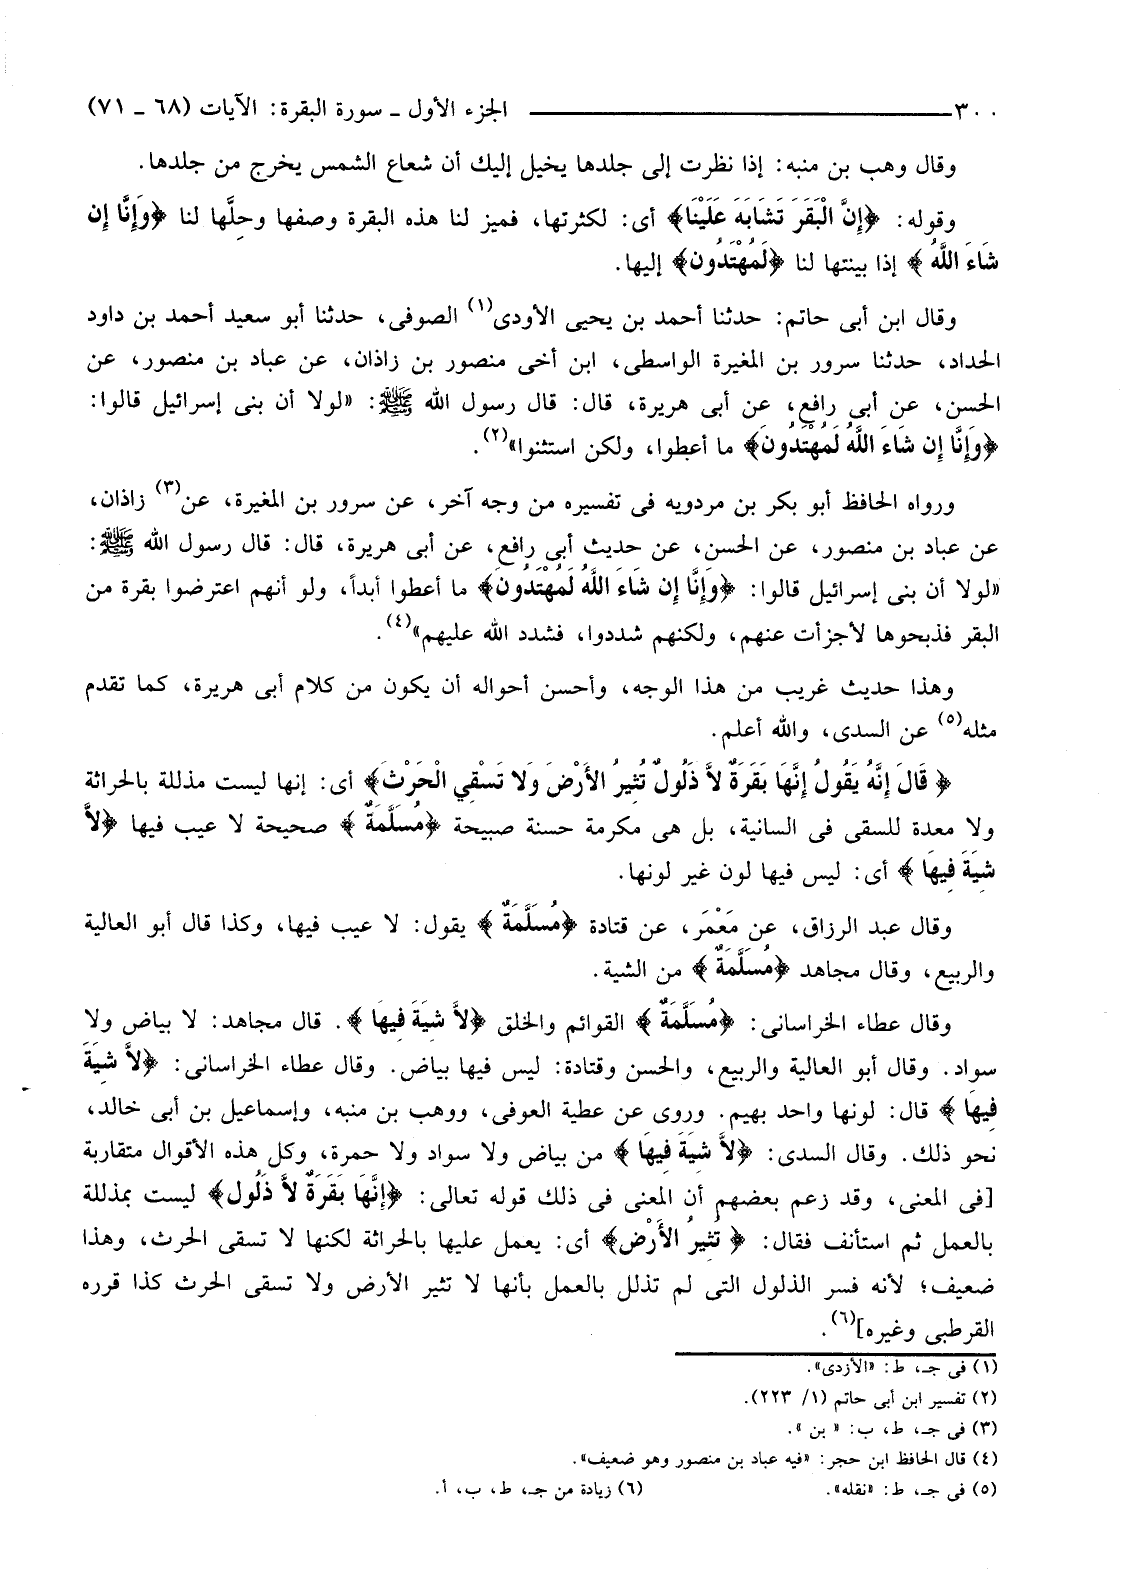 ٣٠٠ ــــــــــ الجزء الأول ـ سورة البقرة: الآيات (٦٨ ـ ٧١)
وقال وهب بن منبه: إذا نظرت إلى جلدها يخيل إليك أن شعاع الشمس يخرج من جلدها.
وقوله: ﴿إِنَّ الْبَقَرَ تَشَابَهَ عَلَيْنَا﴾ أى: لكثرتها، فميز لنا هذه البقرة وصفها وحلَّها لنا ﴿وَإِنَّا إِن
شَاءَ اللَّهُ ﴾ إذا بينتها لنا ﴿لَمُهْتَدُون﴾ إليها.
وقال ابن أبى حاتم: حدثنا أحمد بن يحيى الأودى(١) الصوفى، حدثنا أبو سعيد أحمد بن داود
الحداد، حدثنا سرور بن المغيرة الواسطى، ابن أخى منصور بن زاذان، عن عباد بن منصور، عن
الحسن، عن أبى رافع، عن أبى هريرة، قال: قال رسول الله ﷺ: «لولا أن بنى إسرائيل قالوا:
﴿وَإِنَّا إِن شَاءَ اللَّهُ لَمُهْتَدُونَ﴾ ما أعطوا، ولكن استثنوا»(٢).
ورواه الحافظ أبو بكر بن مردويه فى تفسيره من وجه آخر، عن سرور بن المغيرة، عن(٣) زاذان،
عن عباد بن منصور، عن الحسن، عن حديث أبى رافع، عن أبى هريرة، قال: قال رسول الله ﷺ:
«لولا أن بنى إسرائيل قالوا: ﴿وَإِنَّا إِن شَاءَ اللَّهُ لَمُهْتَدُون﴾ ما أعطوا أبداً، ولو أنهم اعترضوا بقرة من
البقر فذبحوها لأجزأت عنهم، ولكنهم شددوا، فشدد الله عليهم»(٤).
وهذا حديث غريب من هذا الوجه، وأحسن أحواله أن يكون من كلام أبى هريرة، كما تقدم
مثله(٥) عن السدى، والله أعلم.
﴿ قَالَ إِنَّهُ يَقُولُ إِنَّهَا بَقَرَةٌ لاَّ ذَلُولٌ تُثِيرُ الأَرْضَ وَلا تَسْقِي الْحَرْثَ﴾ أى: إنها ليست مذللة بالحراثة
ولا معدة للسقى فى السانية، بل هى مكرمة حسنة صبيحة ﴿مُسَلَّمَةٌ ﴾ صحيحة لا عيب فيها ﴿لاَّ
شِيَةَ فِيهَا ﴾ أى: ليس فيها لون غير لونها.
وقال عبد الرزاق، عن مَعْمَر، عن قتادة ﴿مُسَلَّمَةٌ ﴾ يقول: لا عيب فيها، وكذا قال أبو العالية
والربيع، وقال مجاهد ﴿مُسَلَّمَةٌ ﴾ من الشية.
وقال عطاء الخراسانى: ﴿مُسَلَّمَةٌ ﴾ القوائم والخلق ﴿لاَّ شِيَةَ فِيهَا ﴾. قال مجاهد: لا بياض ولا
سواد. وقال أبو العالية والربيع، والحسن وقتادة: ليس فيها بياض. وقال عطاء الخراسانى: ﴿لاَّ شِيَةَ
فِيهَا ﴾ قال: لونها واحد بهيم. وروى عن عطية العوفى، ووهب بن منبه، وإسماعيل بن أبى خالد،
نحو ذلك. وقال السدى: ﴿لاَّ شِيَةَ فِيهَا ﴾ من بياض ولا سواد ولا حمرة، وكل هذه الأقوال متقاربة
[فى المعنى، وقد زعم بعضهم أن المعنى فى ذلك قوله تعالى: ﴿إِنَّهَا بَقَرَةٌ لاَّ ذَلُول﴾ ليست بمذللة
بالعمل ثم استأنف فقال: ﴿ تُثِيرُ الأَرْض﴾ أى: يعمل عليها بالحراثة لكنها لا تسقى الحرث، وهذا
ضعيف؛ لأنه فسر الذلول التى لم تذلل بالعمل بأنها لا تثير الأرض ولا تسقى الحرث كذا قرره
القرطبى وغيره](٦).
(١) فى جـ، ط: «الأزدى».
(٢) تفسير ابن أبى حاتم (١/ ٢٢٣).
(٣) فى جـ، ط، ب: « بن ».
(٤) قال الحافظ ابن حجر: «فيه عباد بن منصور وهو ضعيف».
(٥) فى جـ، ط: «نقله». (٦) زيادة من جـ، ط، ب، أ.